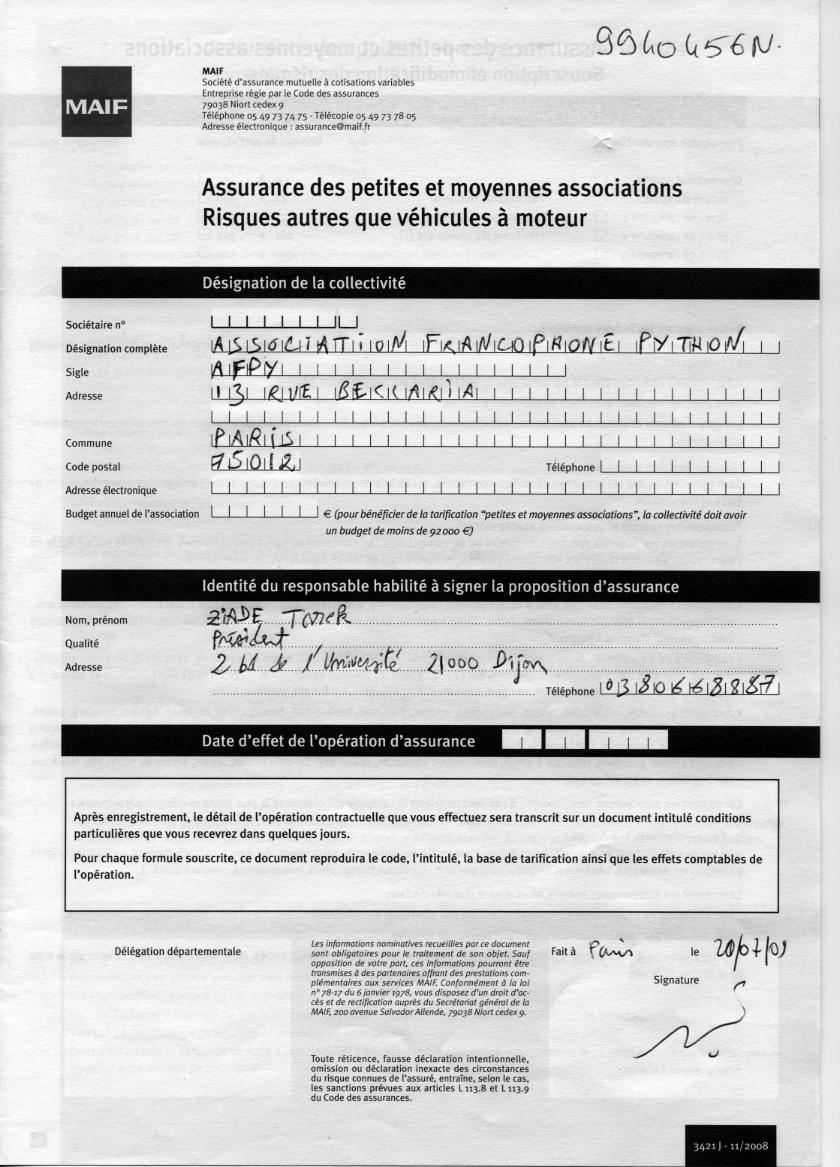 9940456N.
MAIF
MAIF
Société d'assurance mutuelle à cotisations variables
Entreprise régie par le Code des assurances
79038 Niort cedex 9
Téléphone 05 49 73 74 75 - Télécopie 05 49 73 78 05
Adresse électronique : assurance@maif.fr
Assurance des petites et moyennes associations
Risques autres que véhicules à moteur
Désignation de la collectivité
Sociétaire n°
Désignation complète ASSOCIATION FRANCOPHONE PYTHON
Sigle AFPY
Adresse 13 RUE BECCARIA
Commune PARIS
Code postal 75012 Téléphone
Adresse électronique
Budget annuel de l'association € (pour bénéficier de la tarification "petites et moyennes associations", la collectivité doit avoir
un budget de moins de 92 000 €)
Identité du responsable habilité à signer la proposition d'assurance
Nom, prénom ZIADE Tarek
Qualité Président
Adresse 2 bd de l'Université 21000 Dijon
Téléphone 0380668887
Date d'effet de l'opération d'assurance
Après enregistrement, le détail de l'opération contractuelle que vous effectuez sera transcrit sur un document intitulé conditions
particulières que vous recevrez dans quelques jours.
Pour chaque formule souscrite, ce document reproduira le code, l'intitulé, la base de tarification ainsi que les effets comptables de
l'opération.
Délégation départementale
Les informations nominatives recueillies par ce document
sont obligatoires pour le traitement de son objet. Sauf
opposition de votre part, ces informations pourront être
transmises à des partenaires offrant des prestations com-
plémentaires aux services MAIF. Conformément à la loi
n° 78-17 du 6 janvier 1978, vous disposez d'un droit d'ac-
cès et de rectification auprès du Secrétariat général de la
MAIF, 200 avenue Salvador Allende, 79038 Niort cedex 9.
Fait à Paris le 20/07/09
Signature
Toute réticence, fausse déclaration intentionnelle,
omission ou déclaration inexacte des circonstances
du risque connues de l'assuré, entraîne, selon le cas,
les sanctions prévues aux articles L 113.8 et L 113.9
du Code des assurances.
3421 J - 11/2008